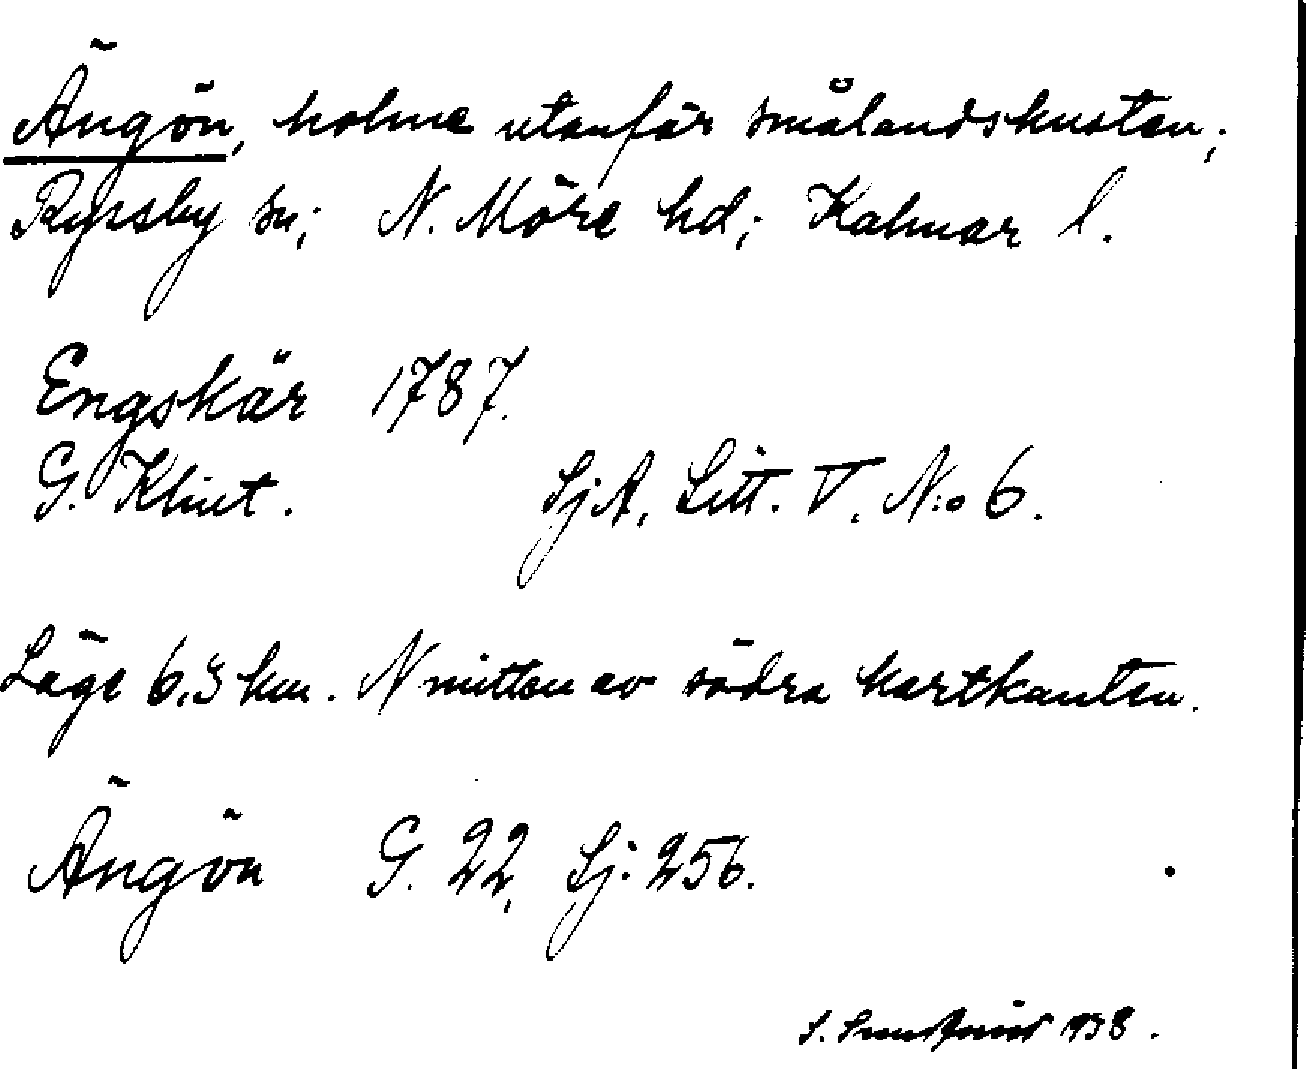 Ängön, holme utanför smålandskusten;
Ryssby sn; N. Möre hd; Kalmar l.
Engskär 1787.
G. Klint. SjA, Litt. V. N:o 6.
Läge 6,3 km. N mitten av södra kartkanten.
Ängön G. 22, Sj. 256.
S. 1938.